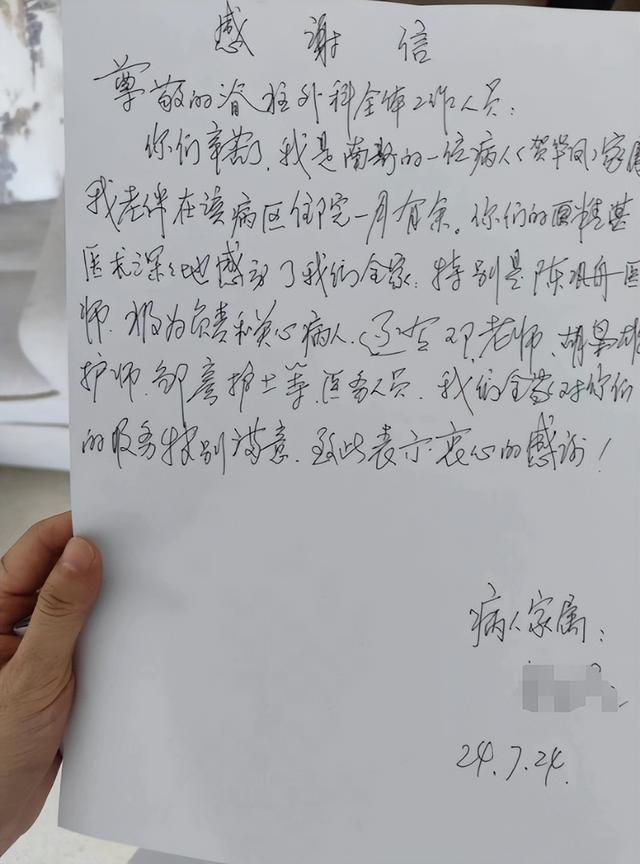 感谢信
尊敬的脊柱外科全体工作人员：
你们辛苦了，我是南县的一位病人（贺华凤）家属
我老伴在该病区住院一月有余。你们的
医术深深地感动了我们全家，特别是陈 医
师，极为负责和关心病人，还有邓老师、胡
护师、邹 护士等，医务人员，我们全家对你们
的服务特别满意，致此表示衷心的感谢！
病人家属：
24.7.24.